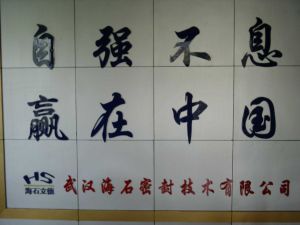 自强不息
赢在中国
HS
海石立德
武汉海石密封技术有限公司